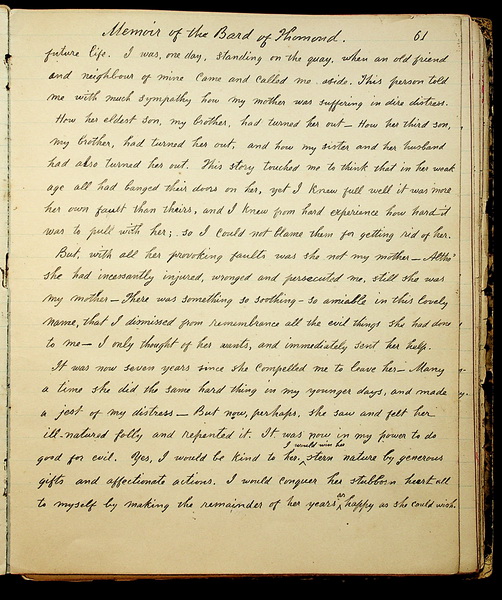 Memoir of the Bard of Thomond. 61
future life. I was, one day, standing on the quay, when an old friend
and neighbour of mine came and called me aside. This person told
me with much sympathy how my mother was suffering in dire distress.
How her eldest son, my brother, had turned her out — How her third son,
my brother, had turned her out, and how my sister and her husband
had also turned her out. This story touched me to think that in her weak
age all had banged their doors on her, yet I knew full well it was more
her own fault than theirs, and I knew from hard experience how hard it
was to pull with her; so I could not blame them for getting rid of her.
But, with all her provoking faults was she not my mother — Altho'
she had incessantly injured, wronged and persecuted me, still she was
my mother — There was something so soothing - so amiable in this lovely
name, that I dismissed from remembrance all the evil things she had done
to me — I only thought of her wants, and immediately sent her help.
It was now seven years since she compelled me to leave her — Many
a time she did the same hard thing in my younger days, and made
a jest of my distress — But now, perhaps, she saw and felt her
ill-natured folly and repented it. It was now in my power to do
good for evil. Yes, I would be kind to her. I would win her stern nature by generous
gifts and affectionate actions. I would conquer her stubborn heart all
to myself by making the remainder of her years as happy as she could wish.